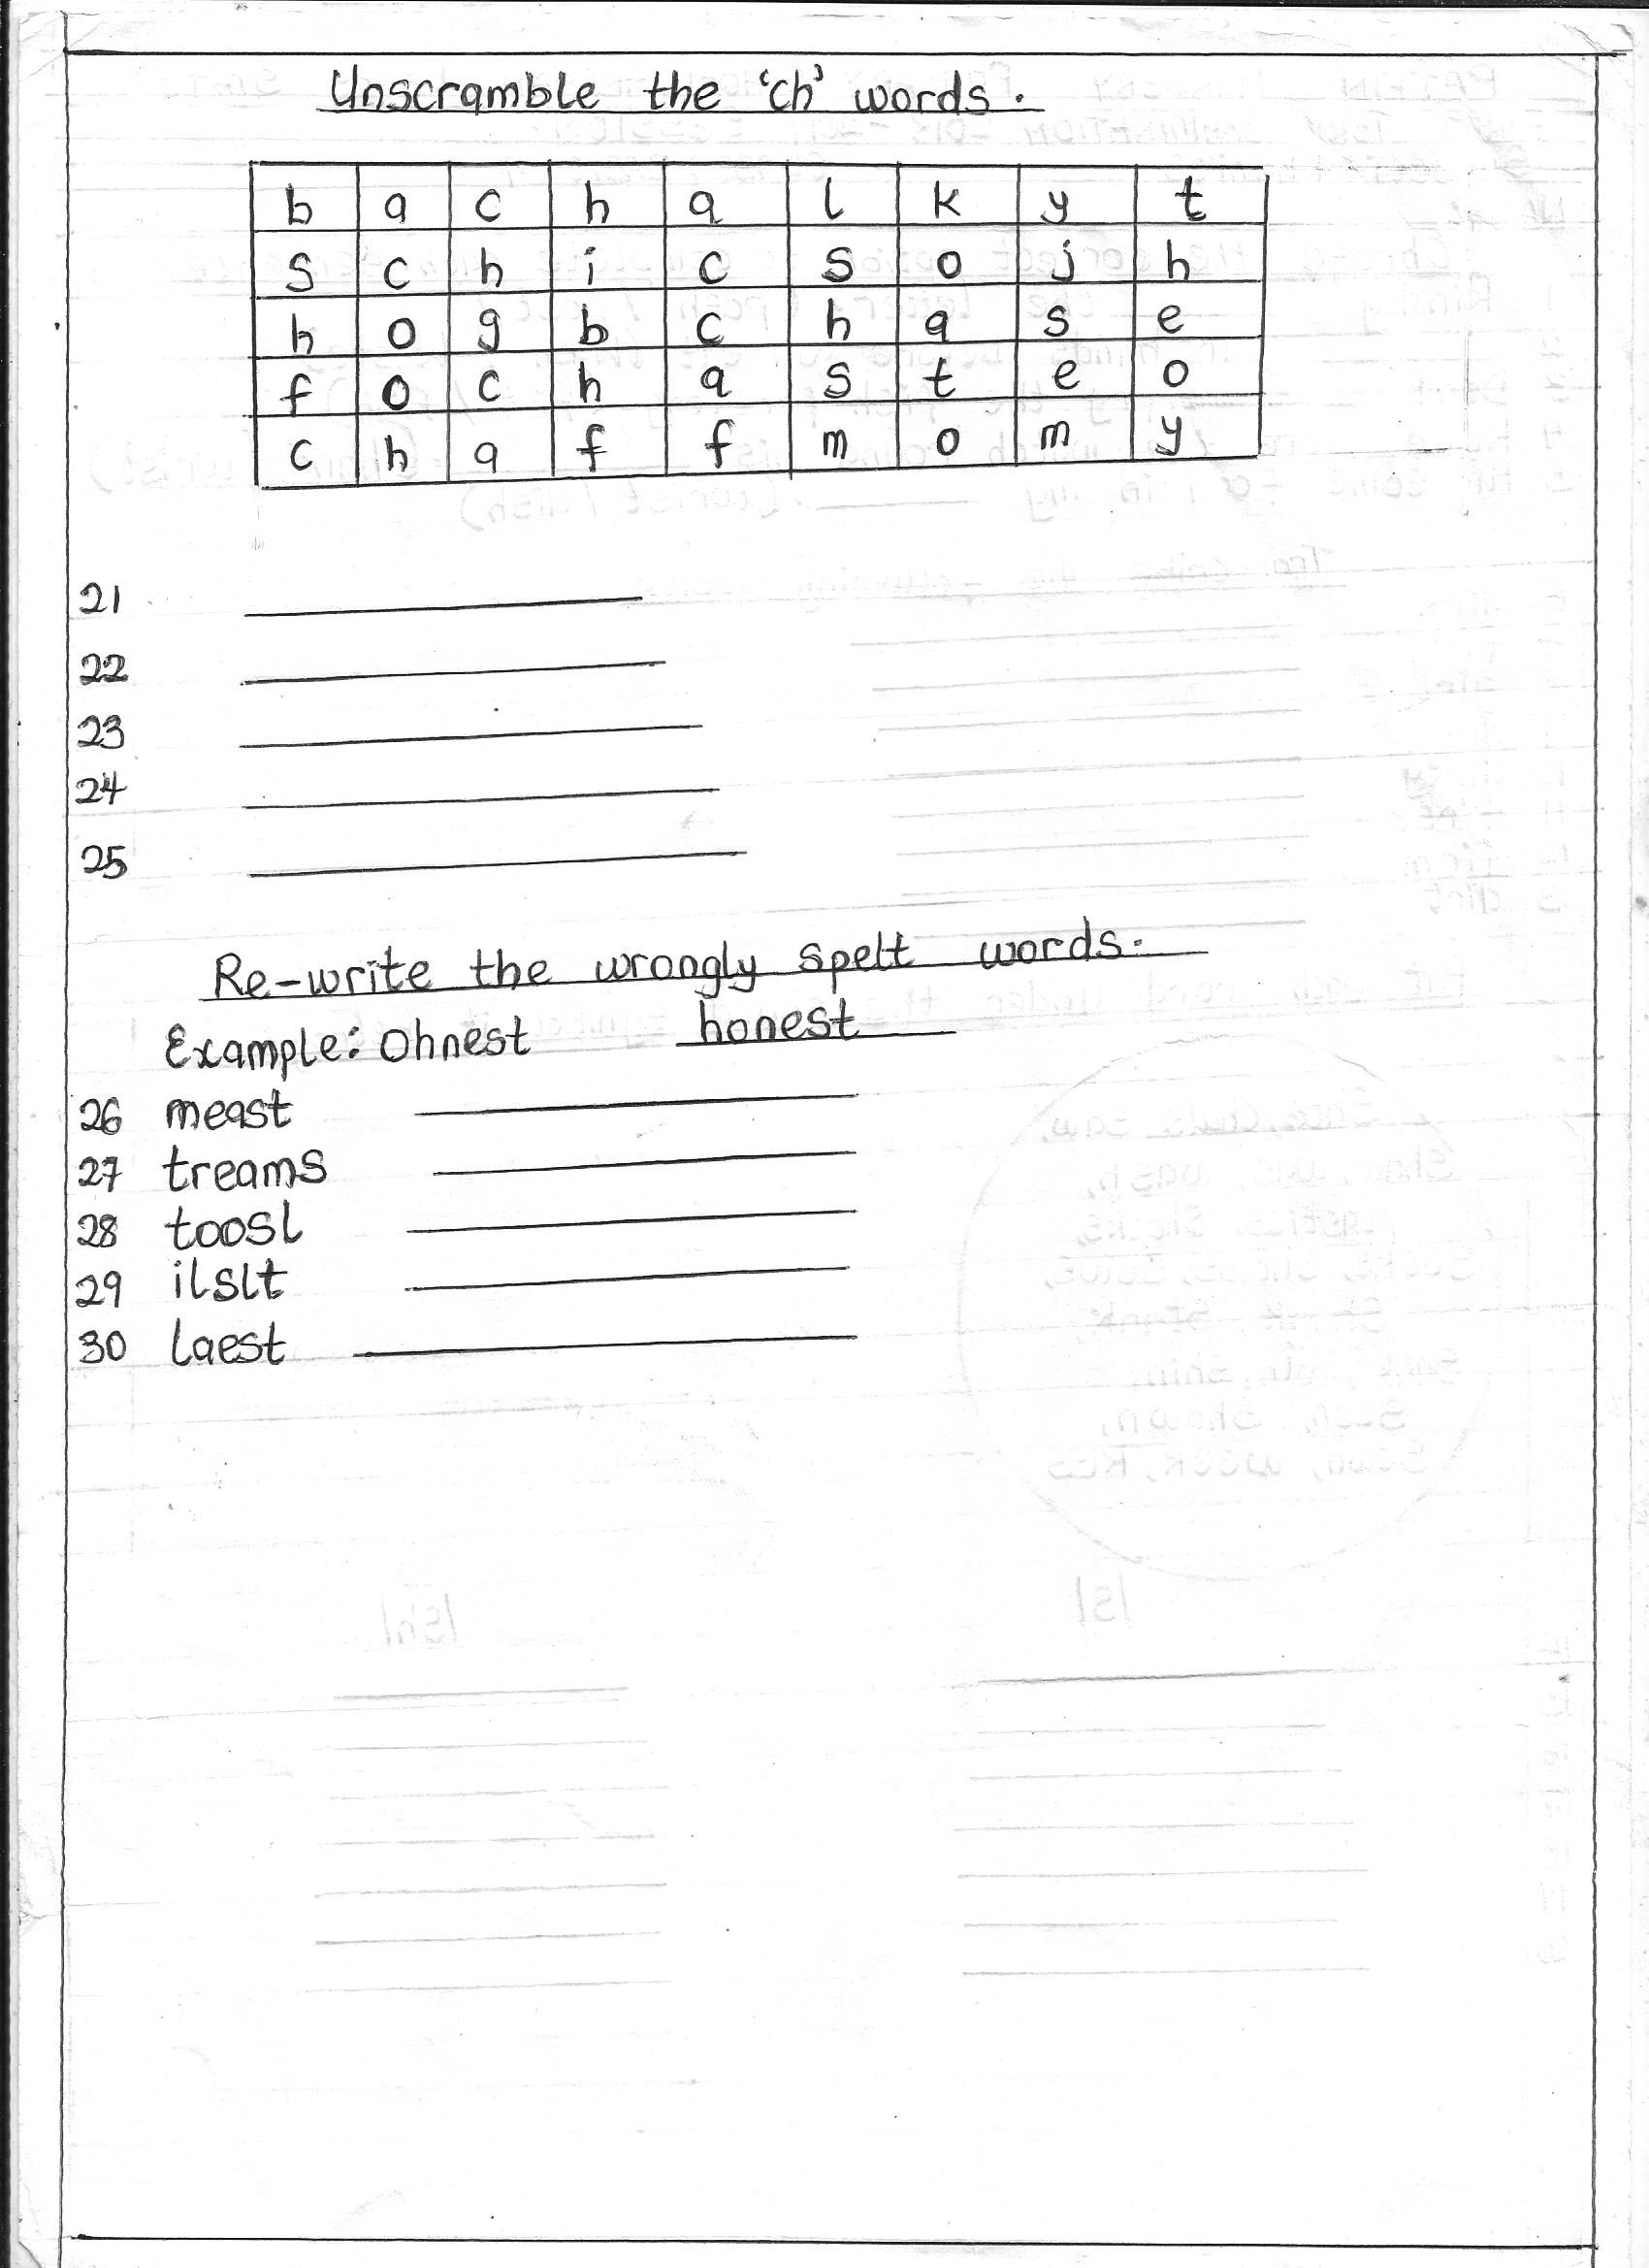 Unscramble the 'ch' words.
b a c h a l k y t
s c h i c s o j h
h o g b c h a s e
f o c h a s t e o
c h a f f m o m y
21
22
23
24
25
Re-write the wrongly spelt words.
Example: ohnest honest
26 meast
27 treams
28 toosl
29 ilslt
30 laest